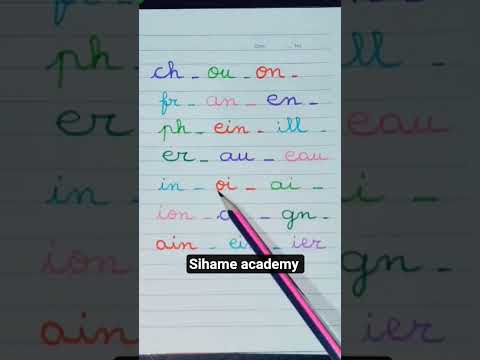 ch - ou - on -
fr - an - en -
ph - ein - ill -
er - au - eau
in - oi - ai -
ion - - gn -
ain - - ier
Sihame academy